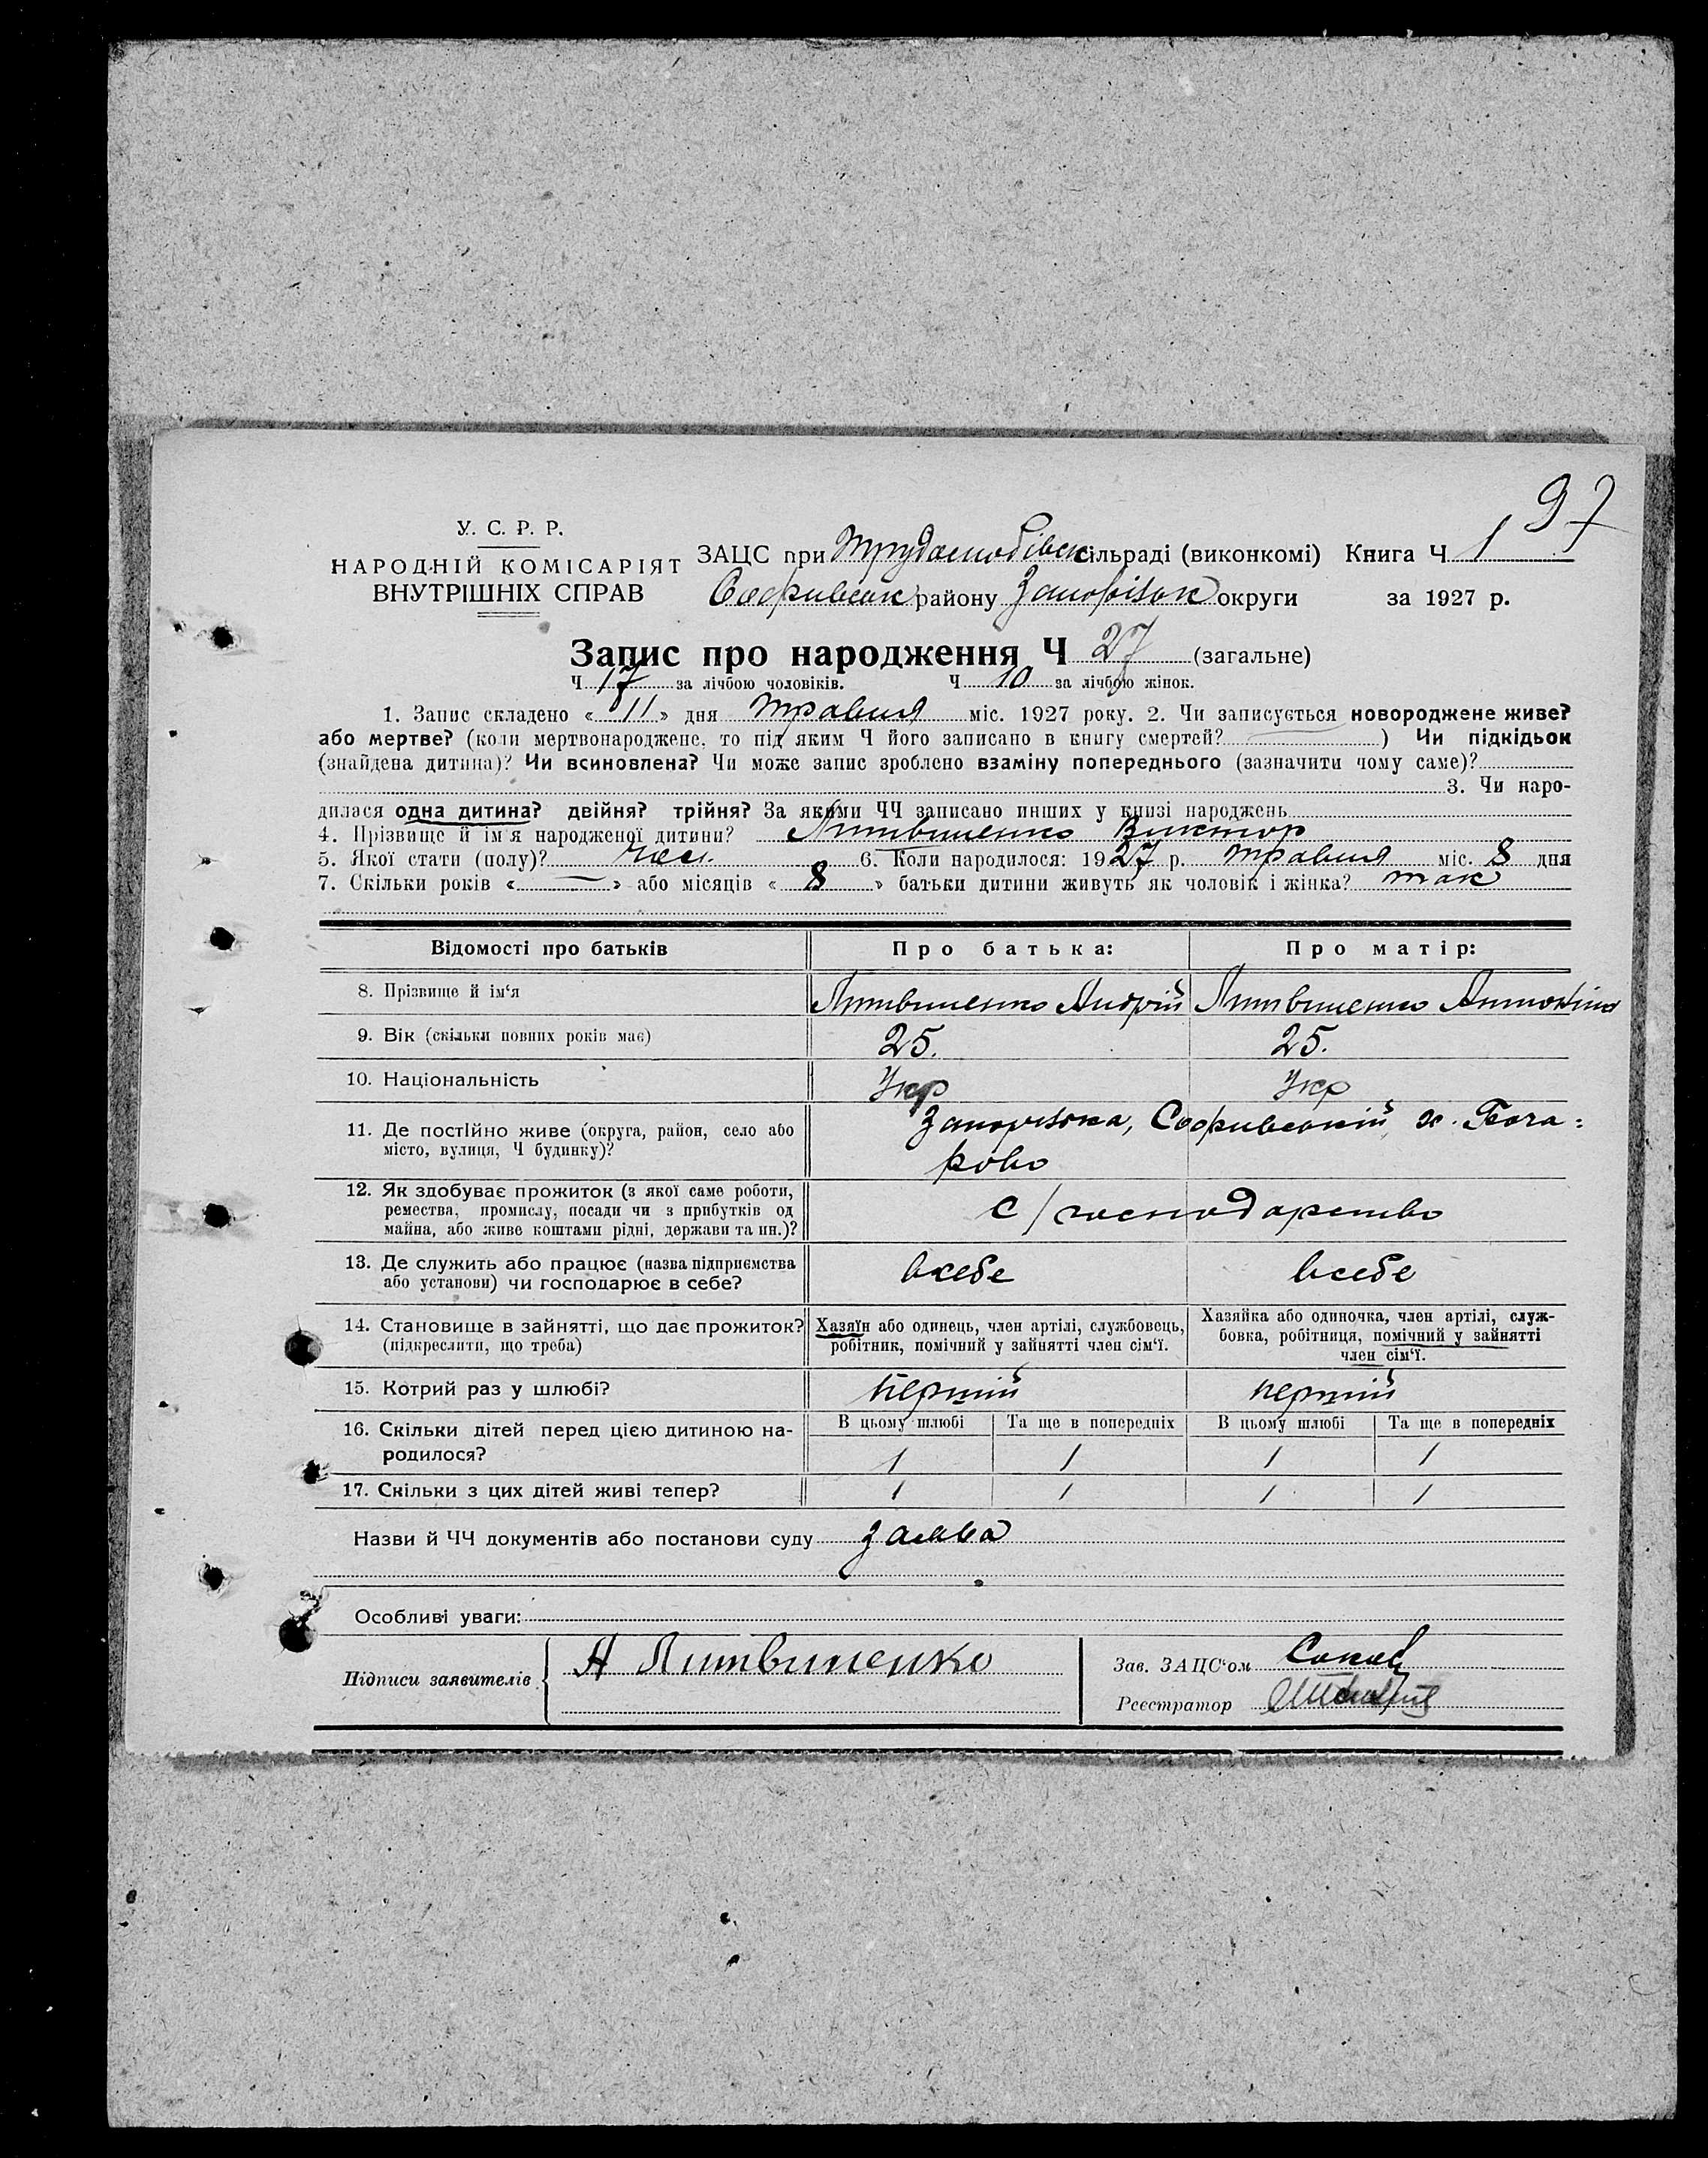 97
У. С. Р. Р.
НАРОДНІЙ КОМІСАРІЯТ
ВНУТРІШНІХ СПРАВ
ЗАЦС при Трудолюбівск сільраді (виконкомі) Книга Ч 1
Софиівськ району Запорізьк округи за 1927 р.
Запис про народження Ч 27 (загальне)
Ч 17 за лічбою чоловіків. Ч 10 за лічбою жінок.
1. Запис складено « 11 » дня травня міс. 1927 року. 2. Чи записується новороджене живе?
або мертве? (коли мертвонароджене, то під яким Ч його записано в книгу смертей? ) Чи підкідьок
(знайдена дитина)? Чи всиновлена? Чи може запис зроблено взаміну попереднього (зазначити чому саме)?
3. Чи наро-
дилася одна дитина? двійня? трійня? За якими ЧЧ записано инших у книзі народжень
4. Прізвище й ім'я народженої дитини? Литвиненко Виктор
5. Якої стати (полу)? чол. 6. Коли народилося: 1927 р. травня міс. 8 дня
7. Скільки років « — » або місяців « 8 » батьки дитини живуть як чоловік і жінка? так
Відомості про батьків Про батька: Про матір:
8. Прізвище й ім‘я Литвиненко Андрій Литвиненко Антоніна
9. Вік (скільки повних років має) 25. 25.
10. Національність Укр Укр
11. Де постійно живе (округа, район, село або
місто, вулиця, Ч будинку)?
12. Як здобуває прожиток (з якої саме роботи,
ремества, промислу, посади чи з прибутків од
майна, або живе коштами рідні, держави та ин.)?
с/господарство
13. Де служить або працює (назва підприємства
або установи) чи господарює в себе?
всебе всебе
14. Становище в зайнятті, що дає прожиток?
(підкреслити, що треба)
Хазяїн або одинець, член артілі, службовець,
робітник, помічний у зайнятті член сім‘ї.
Хазяйка або одиночка, член артілі, служ-
бовка, робітниця, помічний у зайнятті
член сім‘ї.
15. Котрий раз у шлюбі? перший перший
16. Скільки дітей перед цією дитиною на-
родилося?
В цьому шлюбі Та ще в попередніх В цьому шлюбі Та ще в попередніх
/ / / /
17. Скільки з цих дітей живі тепер? / / / /
Назви й ЧЧ документів або постанови суду заява
Особливі уваги:
Підписи заявителів А Литвиненко
Зав. ЗАЦС‘ом
Реєстратор